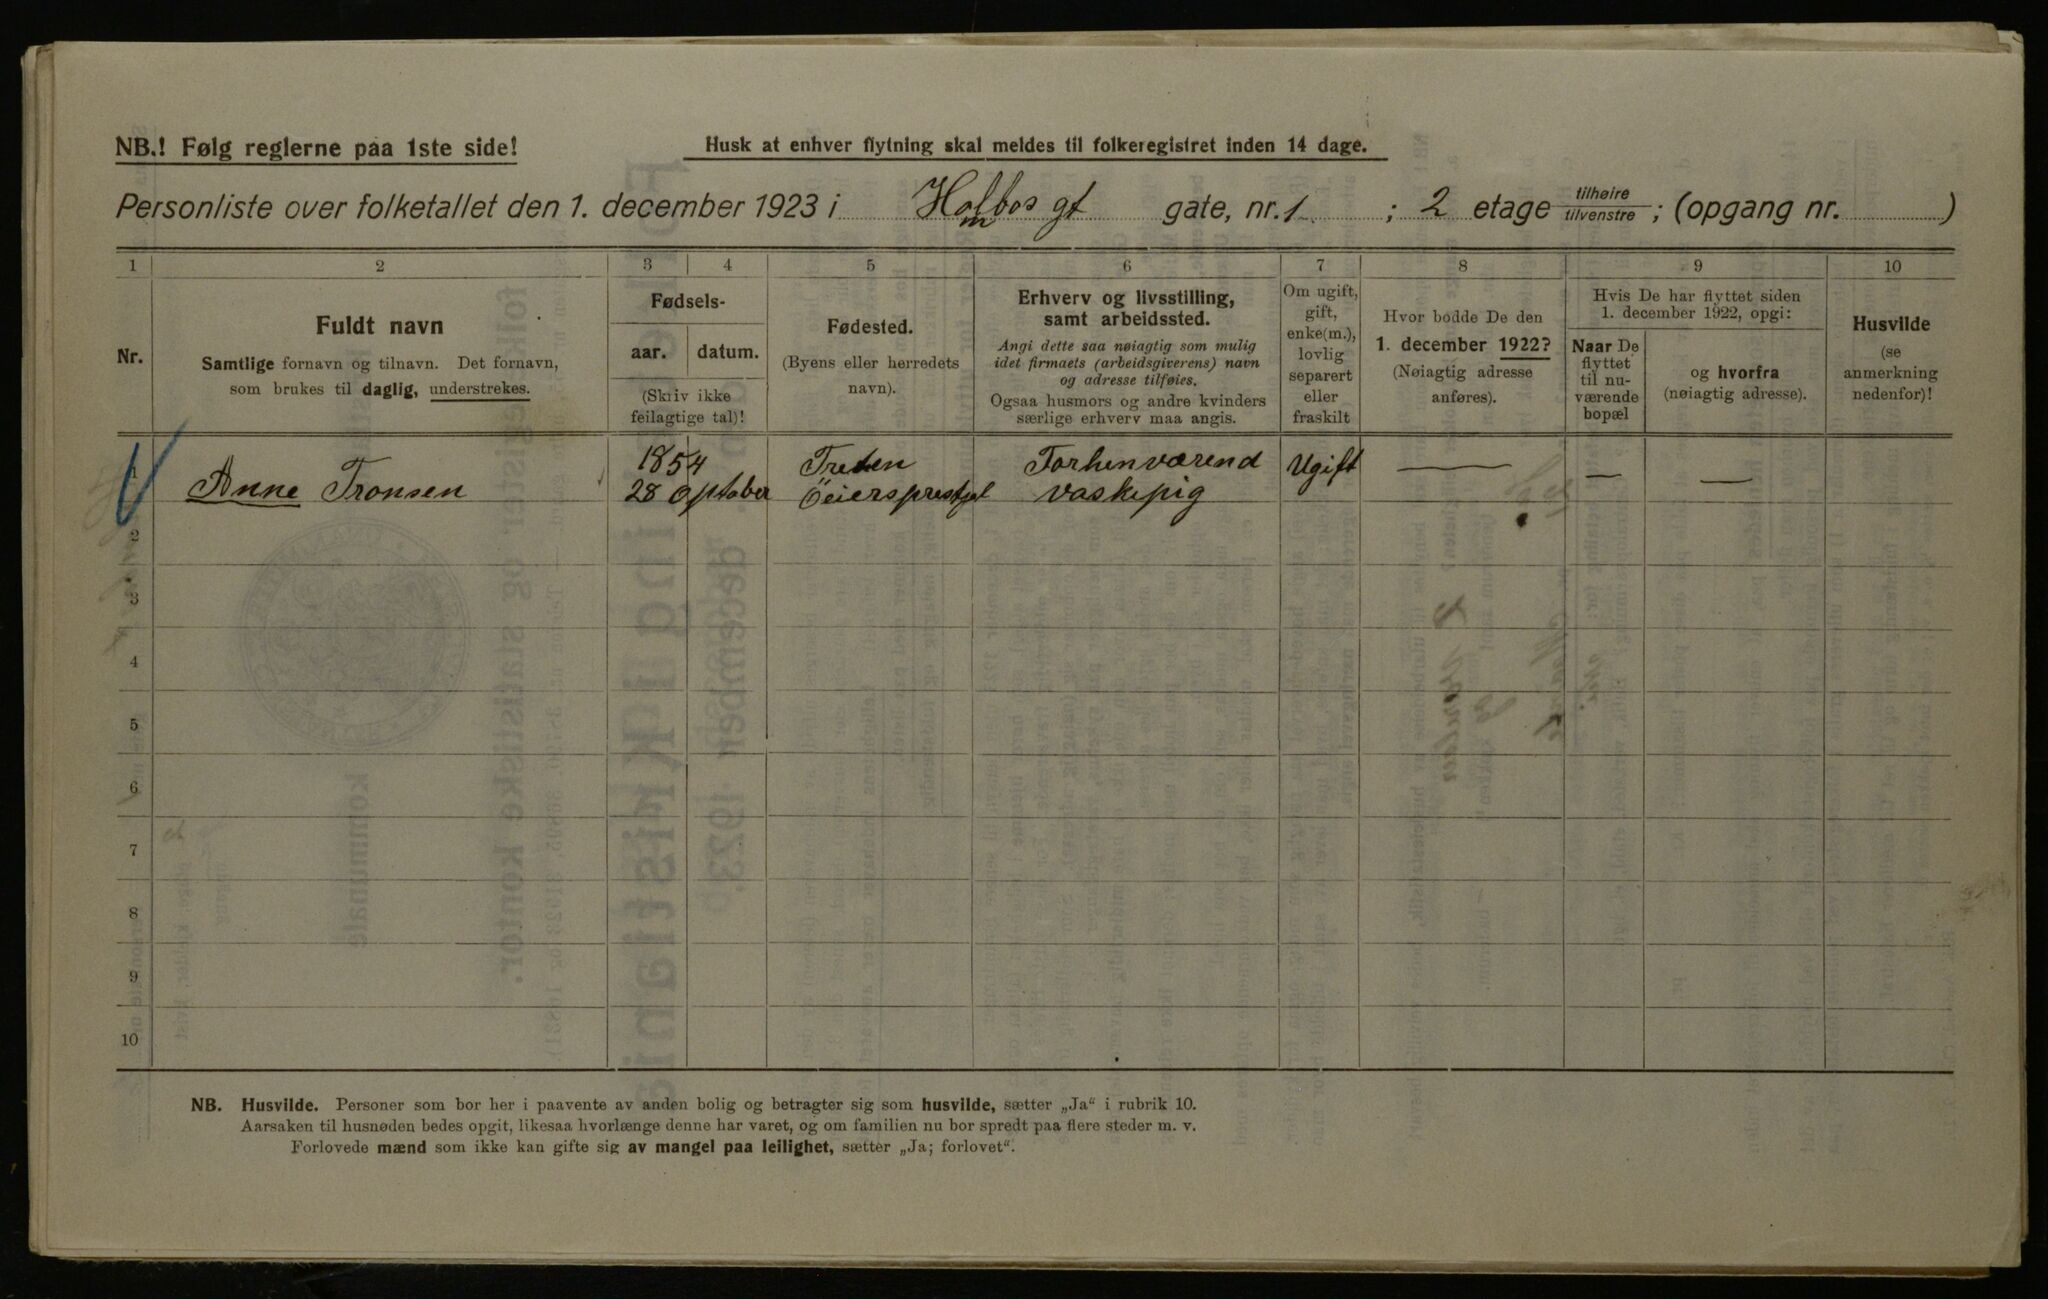 NB.! Følg reglerne paa 1ste side!
Husk at enhver flytning skal meldes til folkeregistret inden 14 dage.
Personliste over folketallet den 1. december 1923 i Holmbos gt gate, nr. 1 ; 2 etage tilhøire tilvenstre ; (opgang nr. )
1 2 3 4 5 6 7 8 9 10
Nr.
Fuldt navn
Samtlige fornavn og tilnavn. Det fornavn,
som brukes til daglig, understrekes.
Fødsels-
aar. datum.
(Skriv ikke
feilagtige tal)!
Fødested.
(Byens eller herredets
navn).
Erhverv og livsstilling,
samt arbeidssted.
Angi dette saa nøiagtig som mulig
idet firmaets (arbeidsgiverens) navn
og adresse tilføies.
Ogsaa husmors og andre kvinders
særlige erhverv maa angis.
Om ugift,
gift,
enke(m.),
lovlig
separert
eller
fraskilt
Hvor bodde De den
1. december 1922?
(Nøiagtig adresse
anføres).
Hvis De har flyttet siden
1. december 1922, opgi:
Naar De
flyttet
til nu-
værende
bopæl
og hvorfra
(nøiagtig adresse).
Husvilde
(se
anmerkning
nedenfor)!
1 Anne Tronsen
1854
28 Optober
Treten
Öeiersprestgel
Forhenværend
vaskepig
Ugift — — —
2
3
4
5
6
7
8
9
10
NB. Husvilde. Personer som bor her i paavente av anden bolig og betragter sig som husvilde, sætter „Ja“ i rubrik 10.
Aarsaken til husnøden bedes opgit, likesaa hvorlænge denne har varet, og om familien nu bor spredt paa flere steder m. v.
Forlovede mænd som ikke kan gifte sig av mangel paa leilighet, sætter „Ja; forlovet“.